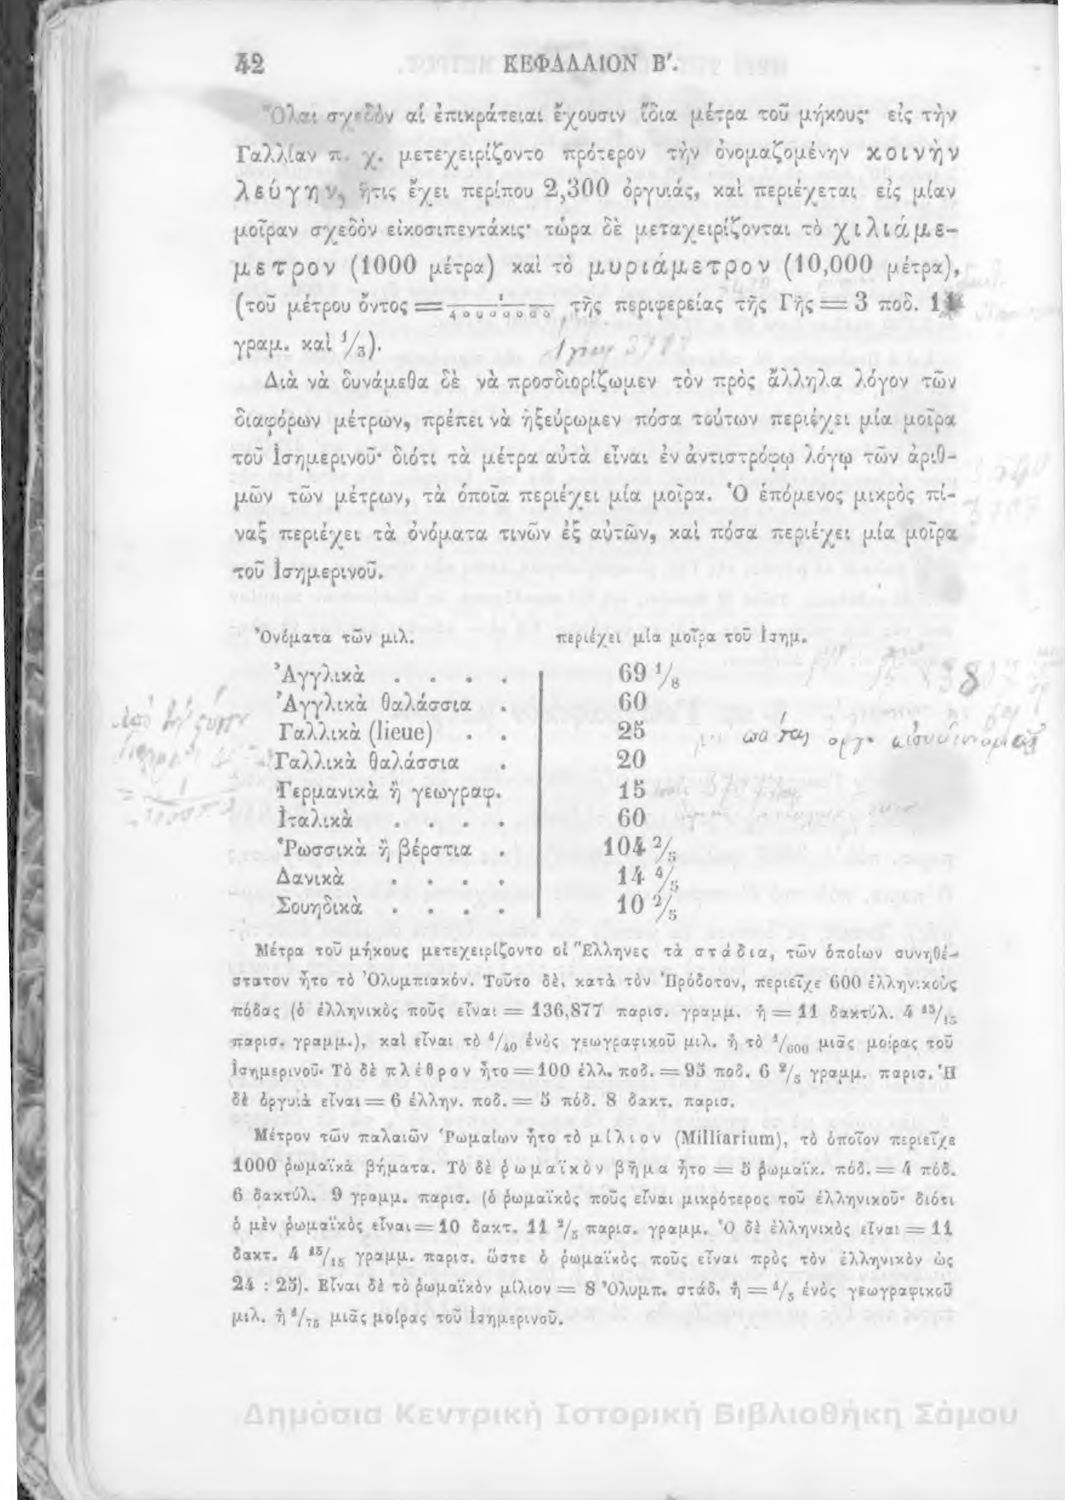 42 ΚΕΦΑΛΑΙΟΝ Β'.
Ὅλαι σχεδὸν αἱ ἐπικράτειαι ἔχουσιν ἴδια μέτρα τοῦ μήκους· εἰς τὴν
Γαλλίαν π. χ. μετεχειρίζοντο πρότερον τὴν ὀνομαζομένην κοινὴν
λεύγην, ἥτις ἔχει περίπου 2,300 ὀργυιάς, καὶ περιέχεται εἰς μίαν
μοῖραν σχεδὸν εἰκοσιπεντάκις· τώρα δὲ μεταχειρίζονται τὸ χιλιάμε-
μετρον (1000 μέτρα) καὶ τὸ μυριάμετρον (10,000 μέτρα),
(τοῦ μέτρου ὄντος = 1/40000000 τῆς περιφερείας τῆς Γῆς = 3 ποδ. 11
γραμ. καὶ 1/3).
Διὰ νὰ δυνάμεθα δὲ νὰ προσδιορίζωμεν τὸν πρὸς ἄλληλα λόγον τῶν
διαφόρων μέτρων, πρέπει νὰ ἠξεύρωμεν πόσα τούτων περιέχει μία μοῖρα
τοῦ Ἰσημερινοῦ· διότι τὰ μέτρα αὐτὰ εἶναι ἐν ἀντιστρόφῳ λόγῳ τῶν ἀριθ-
μῶν τῶν μέτρων, τὰ ὁποῖα περιέχει μία μοῖρα. Ὁ ἑπόμενος μικρὸς πί-
ναξ περιέχει τὰ ὀνόματα τινῶν ἐξ αὐτῶν, καὶ πόσα περιέχει μία μοῖρα
τοῦ Ἰσημερινοῦ.
Ὀνόματα τῶν μιλ. περιέχει μία μοῖρα τοῦ Ἰσημ.
Ἀγγλικὰ . . . . 69 1/8
Ἀγγλικὰ θαλάσσια . 60
Γαλλικὰ (lieue) . . 25
Γαλλικὰ θαλάσσια . 20
Γερμανικὰ ἢ γεωγραφ. 15
Ἰταλικὰ . . . . 60
Ῥωσσικὰ ἢ βέρστια . 104 2/5
Δανικὰ . . . . 14 4/5
Σουηδικὰ . . . . 10 2/5
Μέτρα τοῦ μήκους μετεχειρίζοντο οἱ Ἕλληνες τὰ στάδια, τῶν ὁποίων συνηθέ-
στατον ἦτο τὸ Ὀλυμπιακόν. Τοῦτο δὲ, κατὰ τὸν Ἡρόδοτον, περιεῖχε 600 ἑλληνικοὺς
πόδας (ὁ ἑλληνικὸς ποῦς εἶναι = 136,877 παρισ. γραμμ. ἢ = 11 δακτύλ. 4 13/15
παρισ. γραμμ.), καὶ εἶναι τὸ 1/40 ἑνὸς γεωγραφικοῦ μιλ. ἢ τὸ 1/600 μιᾶς μοίρας τοῦ
Ἰσημερινοῦ· Τὸ δὲ πλέθρον ἦτο = 100 ἑλλ. ποδ. = 95 ποδ. 6 2/5 γραμμ. παρισ. Ἡ
δὲ ὀργυιὰ εἶναι = 6 ἑλλην. ποδ. = 5 πόδ. 8 δακτ. παρισ.
Μέτρον τῶν παλαιῶν Ῥωμαίων ἦτο τὸ μίλιον (Milliarium), τὸ ὁποῖον περιεῖχε
1000 ῥωμαϊκὰ βήματα. Τὸ δὲ ῥωμαϊκὸν βῆμα ἦτο = 5 ῥωμαϊκ. πόδ. = 4 πόδ.
6 δακτύλ. 9 γραμμ. παρισ. (ὁ ῥωμαϊκὸς ποῦς εἶναι μικρότερος τοῦ ἑλληνικοῦ· διότι
ὁ μὲν ῥωμαϊκὸς εἶναι = 10 δακτ. 11 2/5 παρισ. γραμμ. Ὁ δὲ ἑλληνικὸς εἶναι = 11
δακτ. 4 13/15 γραμμ. παρισ. ὥστε ὁ ῥωμαϊκὸς ποῦς εἶναι πρὸς τὸν ἑλληνικὸν ὡς
24 : 25). Εἶναι δὲ τὸ ῥωμαϊκὸν μίλιον = 8 Ὀλυμπ. στάδ. ἢ = 1/5 ἑνὸς γεωγραφικοῦ
μιλ. ἢ 1/75 μιᾶς μοίρας τοῦ Ἰσημερινοῦ.
Δημόσια Κεντρική Ιστορική Βιβλιοθήκη Σάμου